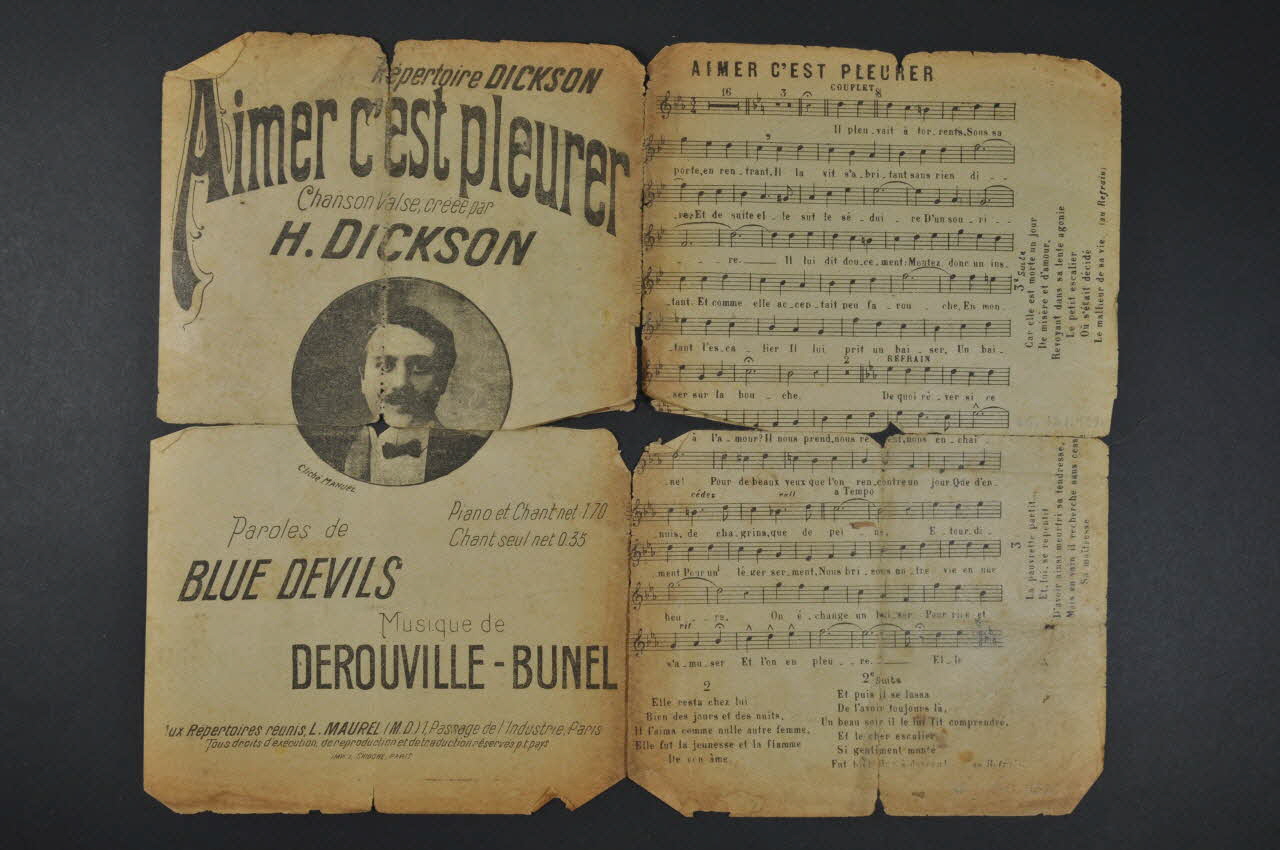 Répertoire DICKSON
Aimer c'est pleurer
Chanson Valse, créée par
H. DICKSON
Cliché MANUEL
Paroles de
Piano et Chant net 1.70
Chant seul net 0.35
BLUE DEVILS
Musique de
DEROUVILLE-BUNEL
Aux Répertoires réunis, L. MAUREL (M.D.) 1, Passage de l'Industrie, Paris
Tous droits d'exécution, de reproduction et de traduction réservés p.t. pays
PARIS
AIMER C'EST PLEURER
COUPLET
16 3 8
Il pleu_vait à tor_rents, Sous sa
porte, en ren_trant, Il la vit s'a_bri_tant sans rien di__
_re; Et de suite el_le sut le sé_dui_re D'un sou_ri__
__re___ Il lui dit dou_ce_ment: Montez donc un ins_
tant. Et comme elle ac_cep_tait peu fa_rou_che, En mon_
tant l'es_ca_lier Il lui prit un bai_ser, Un bai_
2 REFRAIN
ser sur la bou_che. De quoi rê_ver si ce
à l'a_mour? Il nous prend, nous nous en_chai_
_ne! Pour de beaux yeux que l'on ren_contre un jour Que d'en_
cédez rall a Tempo
nuis, de cha_grins, que de pei_ne, E_tour_di_
ment Pour un lé_ger ser_ment, Nous bri_sons no_tre vie en une
heu__re, On é_change un bai_ser Pour rire et
rit
s'a_mu_ser Et l'on en pleu_re.___ El_le
2
Elle resta chez lui
Bien des jours et des nuits,
Il l'aima comme nulle autre femme,
Elle fut la jeunesse et la flamme
De son âme
2e Suite
Et puis il se lassa
De l'avoir toujours là,
Un beau soir il le lui fit comprendre,
Et le cher escalier
Si gentiment monté
Fut au Refrain
3
La pauvrette partit
Et, lui, se repentit
D'avoir ainsi meurtri sa tendresse,
Mais en vain il recherche sans cesse
Sa maîtresse
3e Suite
Car elle est morte un jour
De misère et d'amour,
Revoyant dans sa lente agonie
Le petit escalier
Où s'était décidé
Le malheur de sa vie. (au Refrain)